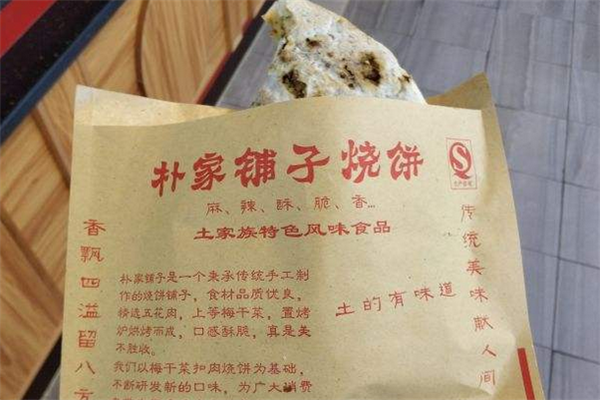 朴家铺子烧饼
麻、辣、酥、脆、香...
土家族特色风味食品
香飘四溢留八方
朴家铺子是一个来承传统手工制
作的烧饼铺子，食材品质优良，
精选五花肉，上等梅干菜，置烤
炉烘烤而成，口感酥脆，真是美
不胜收。
我们以梅干菜扣肉烧饼为基础，
不断研发新的口味，为广大消费
土的有味道
传统美味献人间